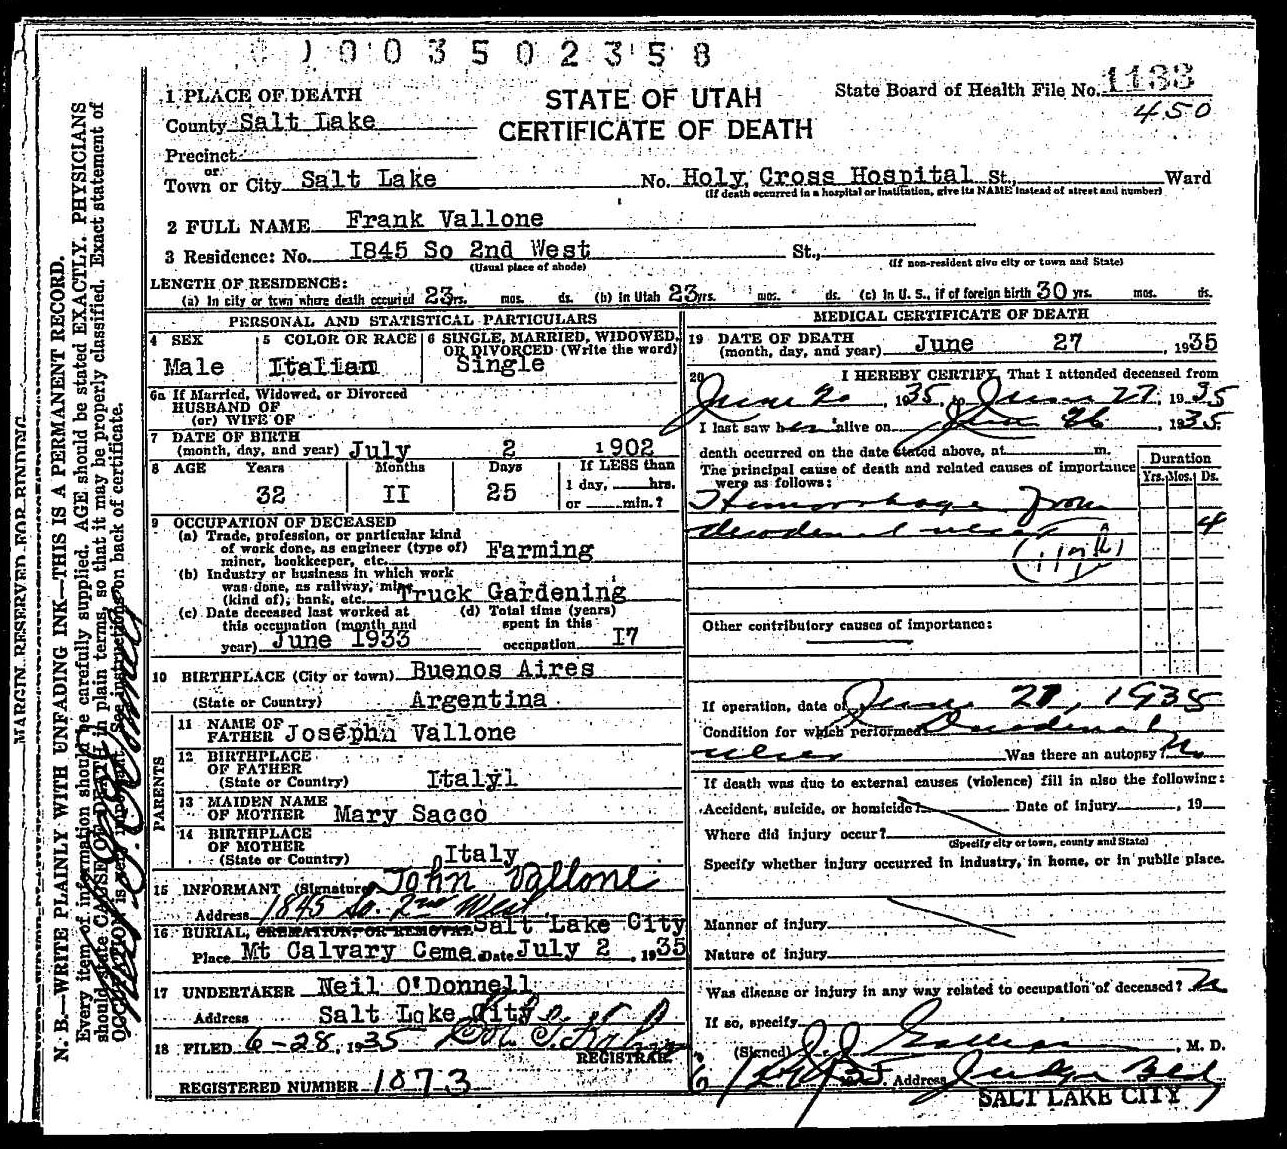 1003502358
1 PLACE OF DEATH
STATE OF UTAH
CERTIFICATE OF DEATH
State Board of Health File No. 1133
450
County Salt Lake
Precinct
or
Town or City Salt Lake No. Holy Cross Hospital St., Ward
(If death occurred in a hospital or institution, give its NAME instead of street and number)
2 FULL NAME Frank Vallone
3 Residence: No. 1845 So 2nd West St.,
(Usual place of abode) (If non-resident give city or town and State)
LENGTH OF RESIDENCE:
(a) In city or town where death occurred 23 yrs. mos. ds. (b) In Utah 23 yrs. mos. ds. (c) In U. S., if of foreign birth 30 yrs. mos. ds.
PERSONAL AND STATISTICAL PARTICULARS
4 SEX Male
5 COLOR OR RACE Italian
6 SINGLE, MARRIED, WIDOWED, OR DIVORCED (Write the word) Single
6a If Married, Widowed, or Divorced
HUSBAND OF
(or) WIFE OF
7 DATE OF BIRTH
(month, day, and year) July 2 1902
8 AGE Years Months Days If LESS than
32 II 25 1 day, hrs.
or min.?
9 OCCUPATION OF DECEASED
(a) Trade, profession, or particular kind
of work done, as engineer (type of)
miner, bookkeeper, etc. Farming
(b) Industry or business in which work
was done, as railway, mine
(kind of), bank, etc. Truck Gardening
(c) Date deceased last worked at
this occupation (month and
year) June 1933
(d) Total time (years)
spent in this
occupation 17
10 BIRTHPLACE (City or town) Buenos Aires
(State or Country) Argentina
PARENTS
11 NAME OF
FATHER Joseph Vallone
12 BIRTHPLACE
OF FATHER
(State or Country) Italyl
13 MAIDEN NAME
OF MOTHER Mary Sacco
14 BIRTHPLACE
OF MOTHER
(State or Country) Italy
15 INFORMANT (Signature) John Vallone
Address 1845 So. 2nd West
16 BURIAL, CREMATION OR REMOVAL Salt Lake City
Place Mt Calvary Ceme. Date July 2, 1935
17 UNDERTAKER Neil O'Donnell
Address Salt Lake City
18 FILED 6-28, 1935
REGISTRAR.
REGISTERED NUMBER 1073
MEDICAL CERTIFICATE OF DEATH
19 DATE OF DEATH
(month, day, and year) June 27, 1935
20 I HEREBY CERTIFY, That I attended deceased from
June 20, 1935, to June 27, 1935
I last saw him alive on June 26, 1935
death occurred on the date stated above, at m.
The principal cause of death and related causes of importance
were as follows:
Duration
Yrs. Mos. Ds.
Hemorrhage from
duodenal ulcer 4
Other contributory causes of importance:
If operation, date of June 21, 1935
Condition for which performed Duodenal
ulcer Was there an autopsy? No
If death was due to external causes (violence) fill in also the following:
Accident, suicide, or homicide? Date of injury, 19
Where did injury occur?
(Specify city or town, county and State)
Specify whether injury occurred in industry, in home, or in public place.
Manner of injury
Nature of injury
Was disease or injury in any way related to occupation of deceased? No
If so, specify
(Signed) , M. D.
Address Judge Bldg
SALT LAKE CITY
MARGIN RESERVED FOR BINDING
N. B.—WRITE PLAINLY WITH UNFADING INK—THIS IS A PERMANENT RECORD.
Every item of information should be carefully supplied. AGE should be stated EXACTLY. PHYSICIANS
should state CAUSE OF DEATH in plain terms, so that it may be properly classified. Exact statement of
OCCUPATION is very important. See instructions on back of certificate.